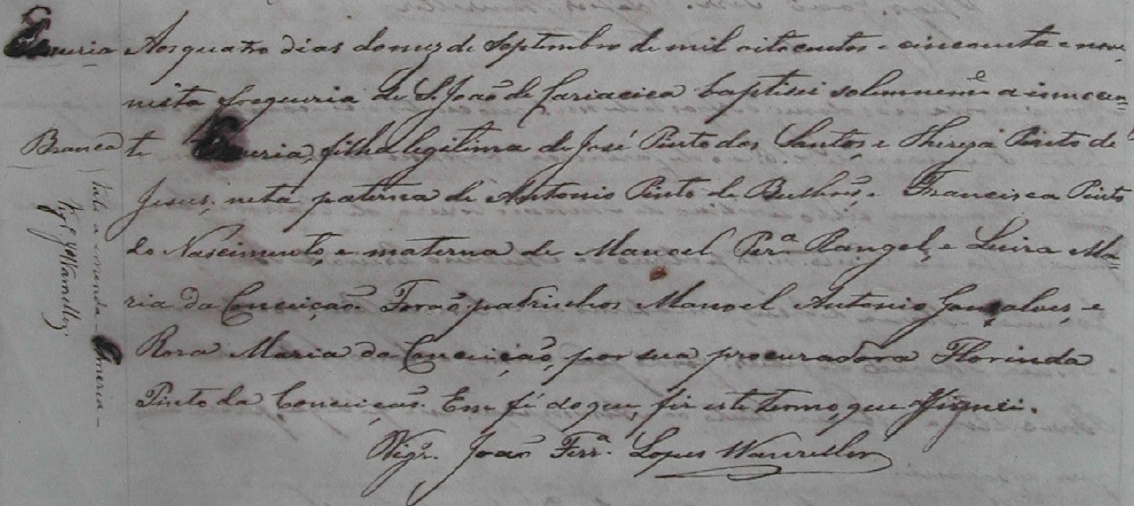 Aos quatro dias do mez de Septembro de mil oitocentos e cincoenta e nove,
nesta freguesia de S. João de Cariacica baptisei solemneme. a innocen=
Branca
te filha legitima de José Pinto dos Santos, e Thereza Pinto de
Jesus; neta paterna de Antonio Pinto de Bulhões, e Francisca Pinto
do Nascimento, e materna de Manoel Per.ª Rangel, e Luiza Ma=
ria da Conceição. Forão padrinhos Manoel Antonio Gonçalves, e
Rosa Maria da Conceição, por sua procuradôra Florinda
Pinto da Conceição. Em fé do que, fiz este termo, que assignei.
Vigr.º João Ferr.ª Lopes Wanzeller
Vale a emenda
Vigr.º Wanzeller